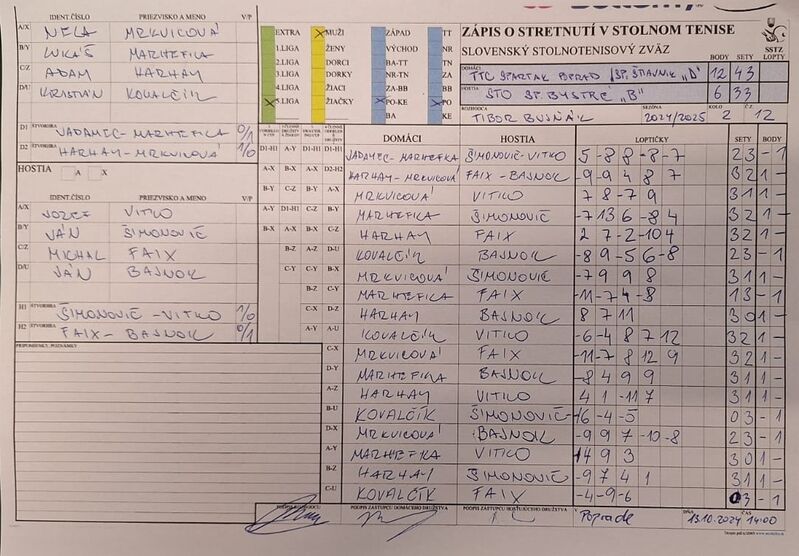 IDENT.ČÍSLO PRIEZVISKO A MENO V/P
A/X NELA MRKVICOVÁ
B/Y LUKÁŠ MARHEFKA
C/Z ADAM HARHAY
D/U KRISTIÁN KOVALČÍK
D1 ŠTVORHRA VADAMEC-MARHEFKA 0/1
D2 ŠTVORHRA HARHAY-MRKVICOVÁ 1/0
HOSTIA A X
IDENT.ČÍSLO PRIEZVISKO A MENO V/P
A/X JOZEF VITKO
B/Y JÁN ŠIMONOVIČ
C/Z MICHAL FAIX
D/U JÁN BAJNOK
H1 ŠTVORHRA ŠIMONOVIČ-VITKO 1/0
H2 ŠTVORHRA FAIX-BAJNOK 0/1
PRIPOMIENKY, POZNÁMKY
EXTRA MUŽI ZÁPAD TT
1.LIGA ŽENY VÝCHOD NR
2.LIGA DORCI BA-TT TN
3.LIGA DORKY NR-TN ZA
4.LIGA ŽIACI ZA-BB BB
5.LIGA ŽIAČKY PO-KE PO
BA KE
ZÁPIS O STRETNUTÍ V STOLNOM TENISE
SLOVENSKÝ STOLNOTENISOVÝ ZVÄZ
SSTZ
BODY SETY LOPTY
DOMÁCI TTC SPARTAK POPRAD /SP. ŠTIAVNIK "D" 12 43
HOSTIA STO SP. BYSTRÉ "B" 6 33
ROZHODCA TIBOR BUJŇÁK SEZÓNA 2024/2025 KOLO 2 Č.Z. 12
DOMÁCI HOSTIA LOPTIČKY SETY BODY
D1-H1 A-Y D1-H1 D1-H1 VADAMEC-MARHEFKA ŠIMONOVIČ-VITKO 5 -8 8 -8 -7 2 3 - 1
A-X B-X A-X D2-H2 HARHAY-MRKVICOVÁ FAIX-BAJNOK -9 -9 4 8 7 3 2 1 -
B-Y C-Z B-Y A-X MRKVICOVÁ VITKO 7 8 -7 9 3 1 1 -
A-Y D1-H1 C-Z B-Y MARHEFKA ŠIMONOVIČ -7 13 6 -8 4 3 2 1 -
B-X A-X A-Y C-Z HARHAY FAIX 2 7 -2 -10 4 3 2 1 -
B-Z A-Z D-U KOVALČÍK BAJNOK -8 9 -5 6 -8 2 3 - 1
C-Y C-Y B-X MRKVICOVÁ ŠIMONOVIČ -7 9 9 8 3 1 1 -
B-Z C-Y MARHEFKA FAIX -11 -7 4 -8 1 3 - 1
C-X D-Z HARHAY BAJNOK 8 7 11 3 0 1 -
A-Y A-U KOVALČÍK VITKO -6 -4 8 7 12 3 2 1 -
C-X MRKVICOVÁ FAIX -11 -7 8 12 9 3 2 1 -
D-Y MARHEFKA BAJNOK -8 4 9 9 3 1 1 -
A-Z HARHAY VITKO 4 1 -11 7 3 1 1 -
B-U KOVALČÍK ŠIMONOVIČ -16 -4 -5 0 3 - 1
D-X MRKVICOVÁ BAJNOK -9 9 7 -10 -8 2 3 - 1
A-Y MARHEFKA VITKO 14 9 3 3 0 1 -
B-Z HARHAY ŠIMONOVIČ -9 7 4 1 3 1 1 -
C-U KOVALČÍK FAIX -4 -9 -6 0 3 - 1
PODPIS ROZHODCU PODPIS ZÁSTUPCU DOMÁCEHO DRUŽSTVA PODPIS ZÁSTUPCU HOSŤUJÚCEHO DRUŽSTVA V Poprade DŇA 13.10.2024 ČAS 14:00